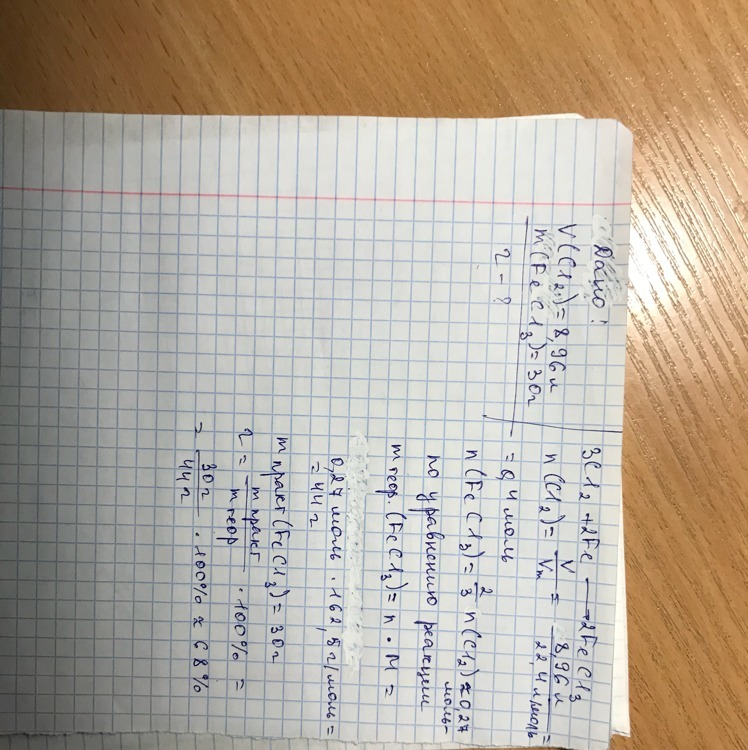 Дано:
V(Cl2)=8,96л
m(FeCl3)=30г
η - ?
3Cl2+2Fe → 2FeCl3
n(Cl2)= V/Vm = 8,96л/22,4л/моль =
= 0,4 моль
n(FeCl3)= 2/3 n(Cl2)≈0,27
моль-
по уравнению реакции
m теор. (FeCl3)= n · M =
0,27 моль · 162,5г/моль =
= 44г
m практ(FeCl3)= 30г
η = m практ/m теор · 100% =
= 30г/44г · 100% ≈ 68%